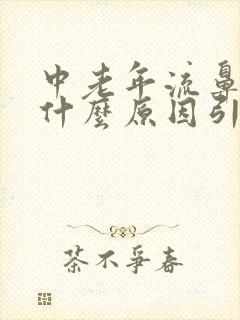 中老年流鼻
什麼原因引
茶不爭春